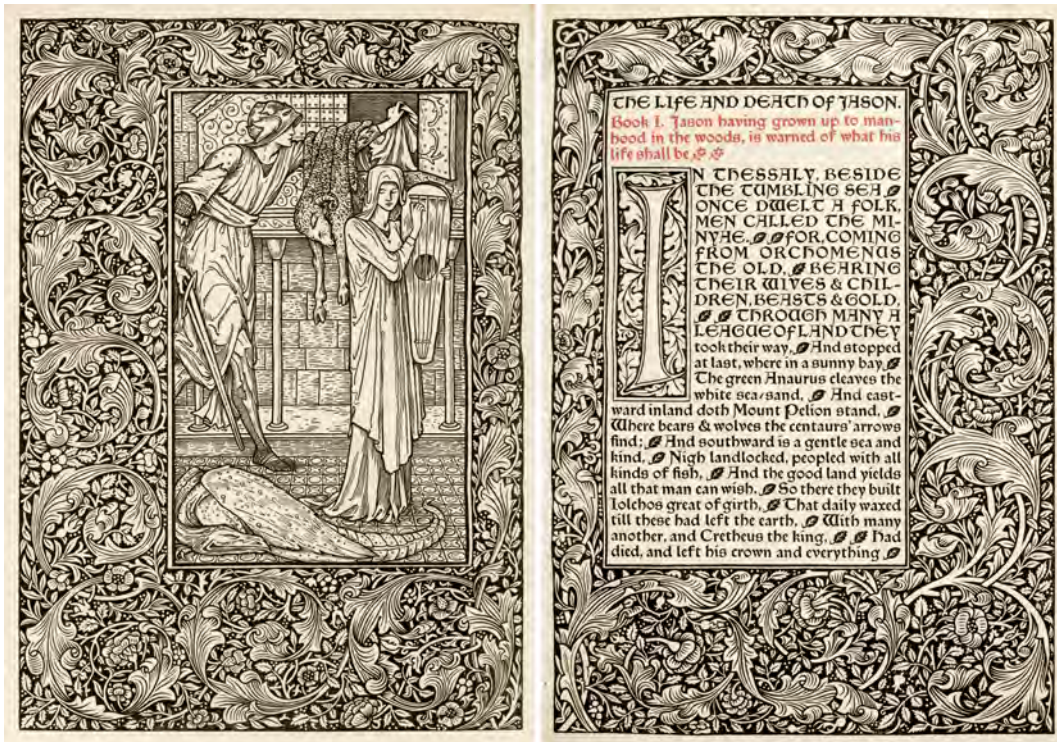 THE LIFE AND DEATH OF JASON.
Book I. Jason having grown up to man-
hood in the woods, is warned of what his
life shall be.
IN THESSALY, BESIDE
THE TUMBLING SEA
ONCE DWELT A FOLK,
MEN CALLED THE MI-
NYAE. FOR, COMING
FROM ORCHOMENUS
THE OLD, BEARING
THEIR WIVES & CHIL-
DREN, BEASTS & GOLD,
THROUGH MANY A
LEAGUE OF LAND THEY
took their way, And stopped
at last, where in a sunny bay
The green Anaurus cleaves the
white sea-sand, And east-
ward inland doth Mount Pelion stand,
Where bears & wolves the centaurs' arrows
find; And southward is a gentle sea and
kind, Nigh landlocked, peopled with all
kinds of fish, And the good land yields
all that man can wish. So there they built
Iolchos great of girth, That daily waxed
till these had left the earth, With many
another, and Cretheus the king, Had
died, and left his crown and everything